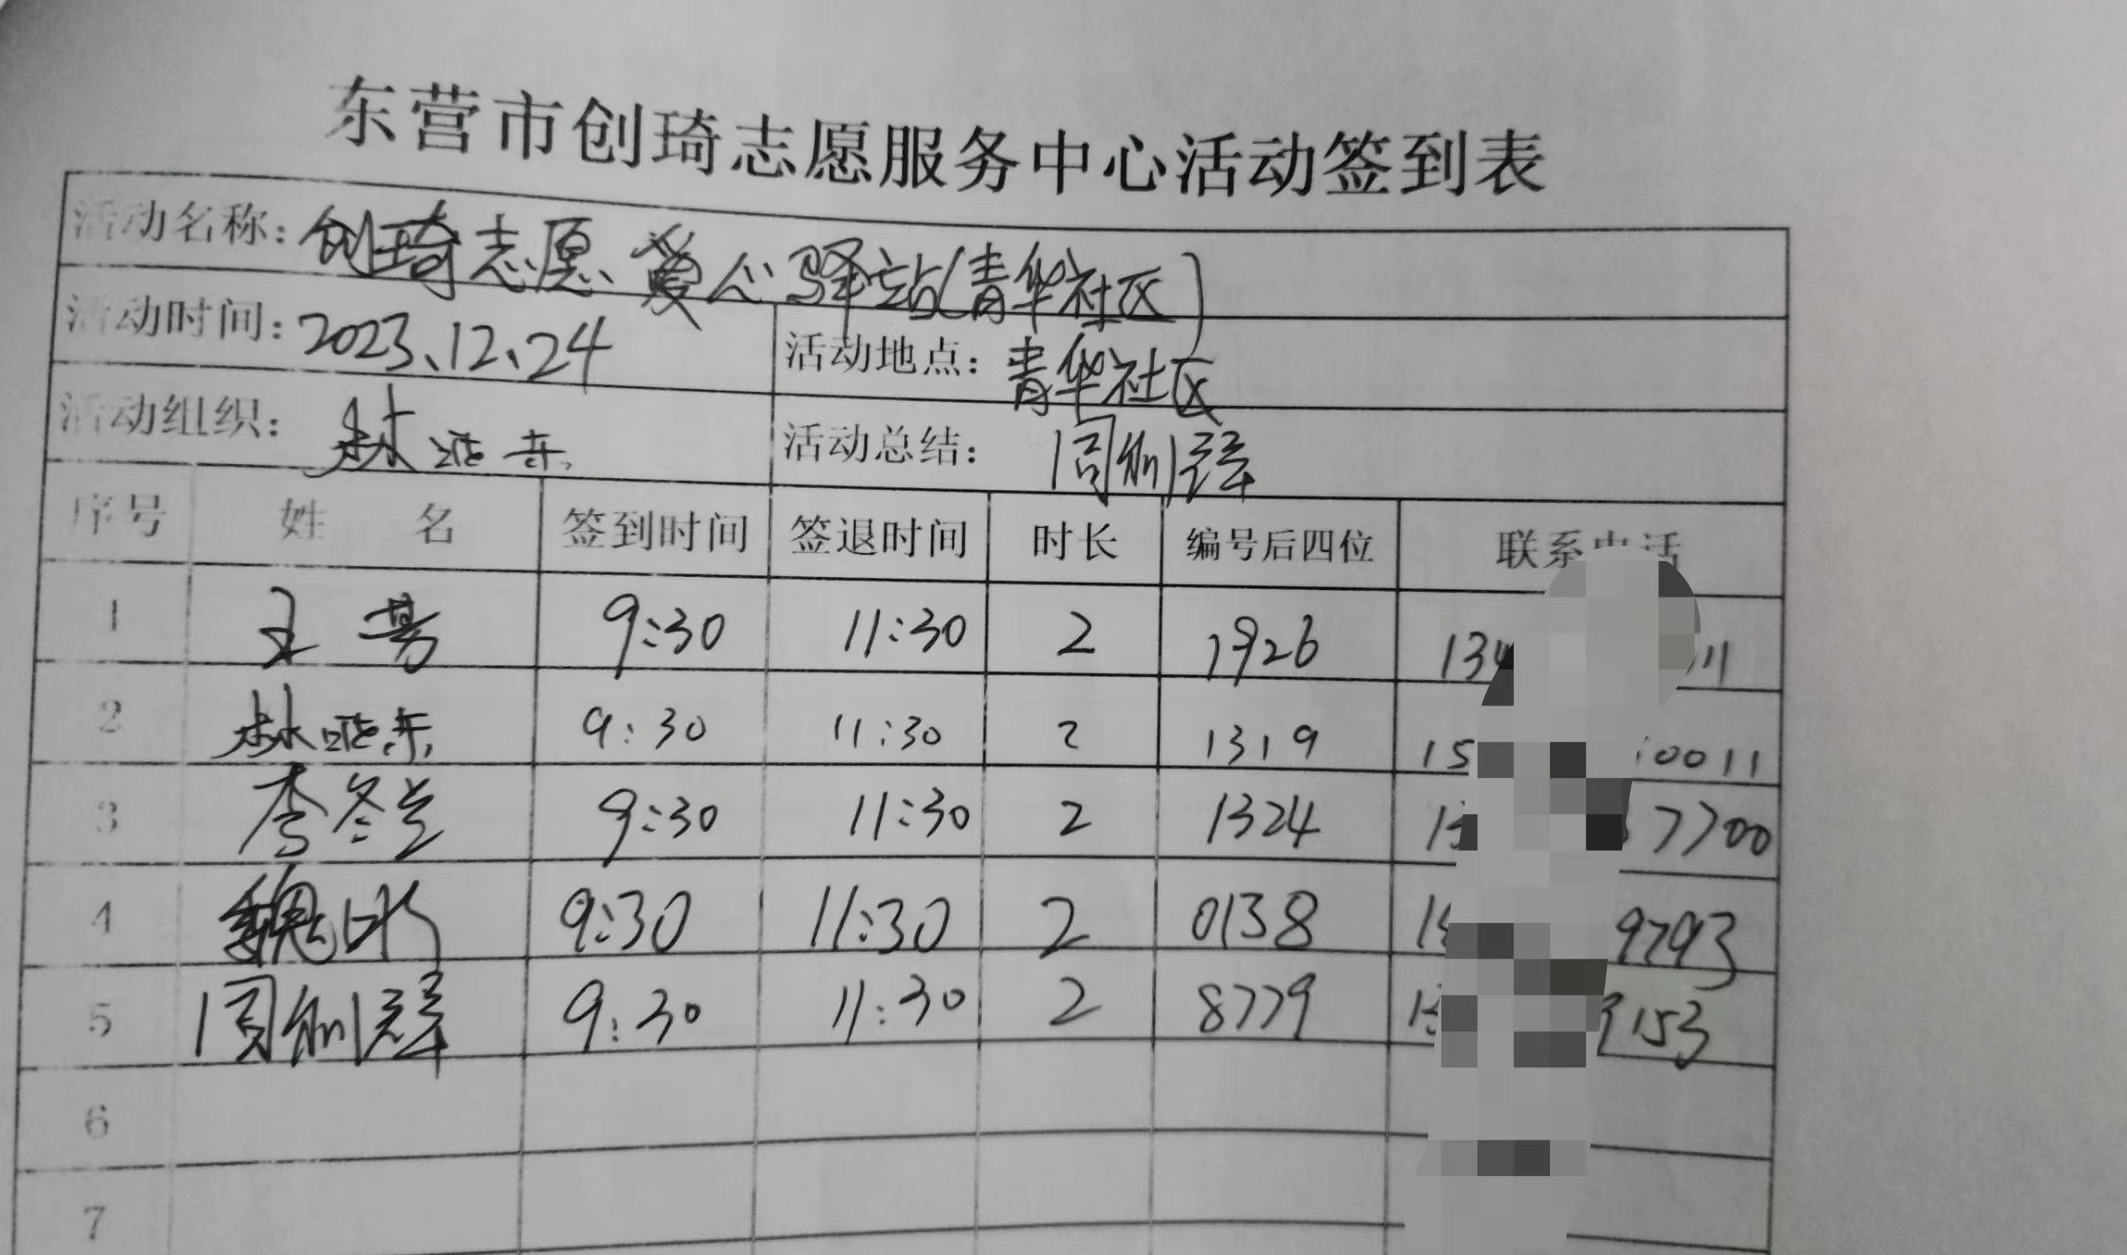 东营市创琦志愿服务中心活动签到表
活动名称: 创琦志愿、爱心驿站(青华社区)
活动时间: 2023、12、24 活动地点: 青华社区
活动组织: 活动总结:
序号 姓 名 签到时间 签退时间 时长 编号后四位 联系电话
1 王芳 9:30 11:30 2 1926 13 11
2 9:30 11:30 2 1319 15 0011
3 李冬兰 9:30 11:30 2 1324 15 7700
4 魏 9:30 11:30 2 0138 9793
5 9:30 11:30 2 8779 15 9153
6
7